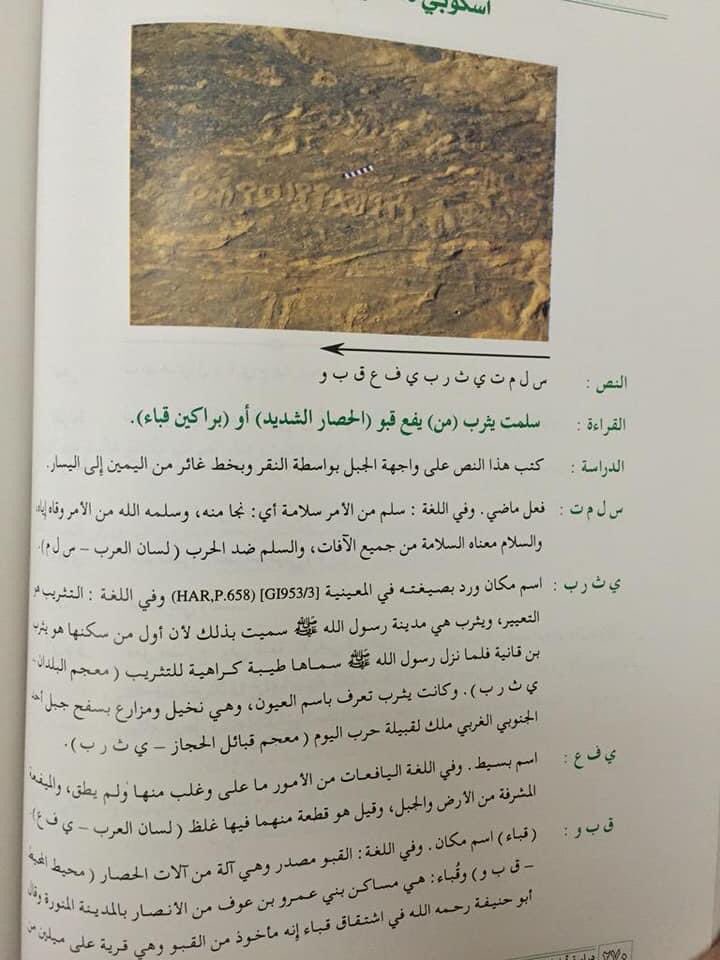 اسكوبي
النص : س ل م ت ي ث ر ب ي ف ع ق ب و
القراءة : سلمت يثرب (من) يفع قبو (الحصار الشديد) أو (براكين قباء).
الدراسة : كتب هذا النص على واجهة الجبل بواسطة النقر وبخط غائر من اليمين إلى اليسار.
س ل م ت : فعل ماضي. وفي اللغة : سلم من الأمر سلامة أي: نجا منه، وسلمه الله من الأمر وقاه إياه،
والسلام معناه السلامة من جميع الآفات، والسلم ضد الحرب ( لسان العرب – س ل م).
ي ث ر ب : اسم مكان ورد بصيغته في المعينية [GI953/3] (HAR,P.658) وفي اللغة : التثريب هو
التعيير، ويثرب هي مدينة رسول الله ﷺ سميت بذلك لأن أول من سكنها هو يثرب
بن قانية فلما نزل رسول الله ﷺ سماها طيبة كراهية للتثريب ( معجم البلدان –
ي ث ر ب ). وكانت يثرب تعرف باسم العيون، وهي نخيل ومزارع بسفح جبل أحد
الجنوبي الغربي ملك لقبيلة حرب اليوم ( معجم قبائل الحجاز – ي ث ر ب ).
ي ف ع : اسم بسيط. وفي اللغة اليافعات من الأمور ما على وغلب منها ولم يطق، والميفعة
المشرفة من الأرض والجبل، وقيل هو قطعة منهما فيها غلظ ( لسان العرب – ي ف ع).
ق ب و : (قباء) اسم مكان. وفي اللغة: القبو مصدر وهي آلة من آلات الحصار ( محيط المحيط
– ق ب و ) وقُباء: هي مساكن بني عمرو بن عوف من الأنصار بالمدينة المنورة وقال
أبو حنيفة رحمه الله في اشتقاق قباء إنه مأخوذ من القبو وهي قرية على ميلين من
٢٧٠